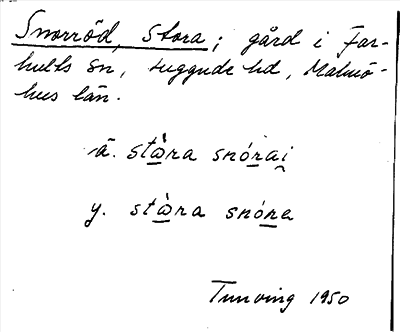 Snorröd, Stora; gård i Far-
hults sn, Luggude hd, Malmö-
hus län.
ä. stὼra snórai̯
y. stὼra snóre
Tunving 1950